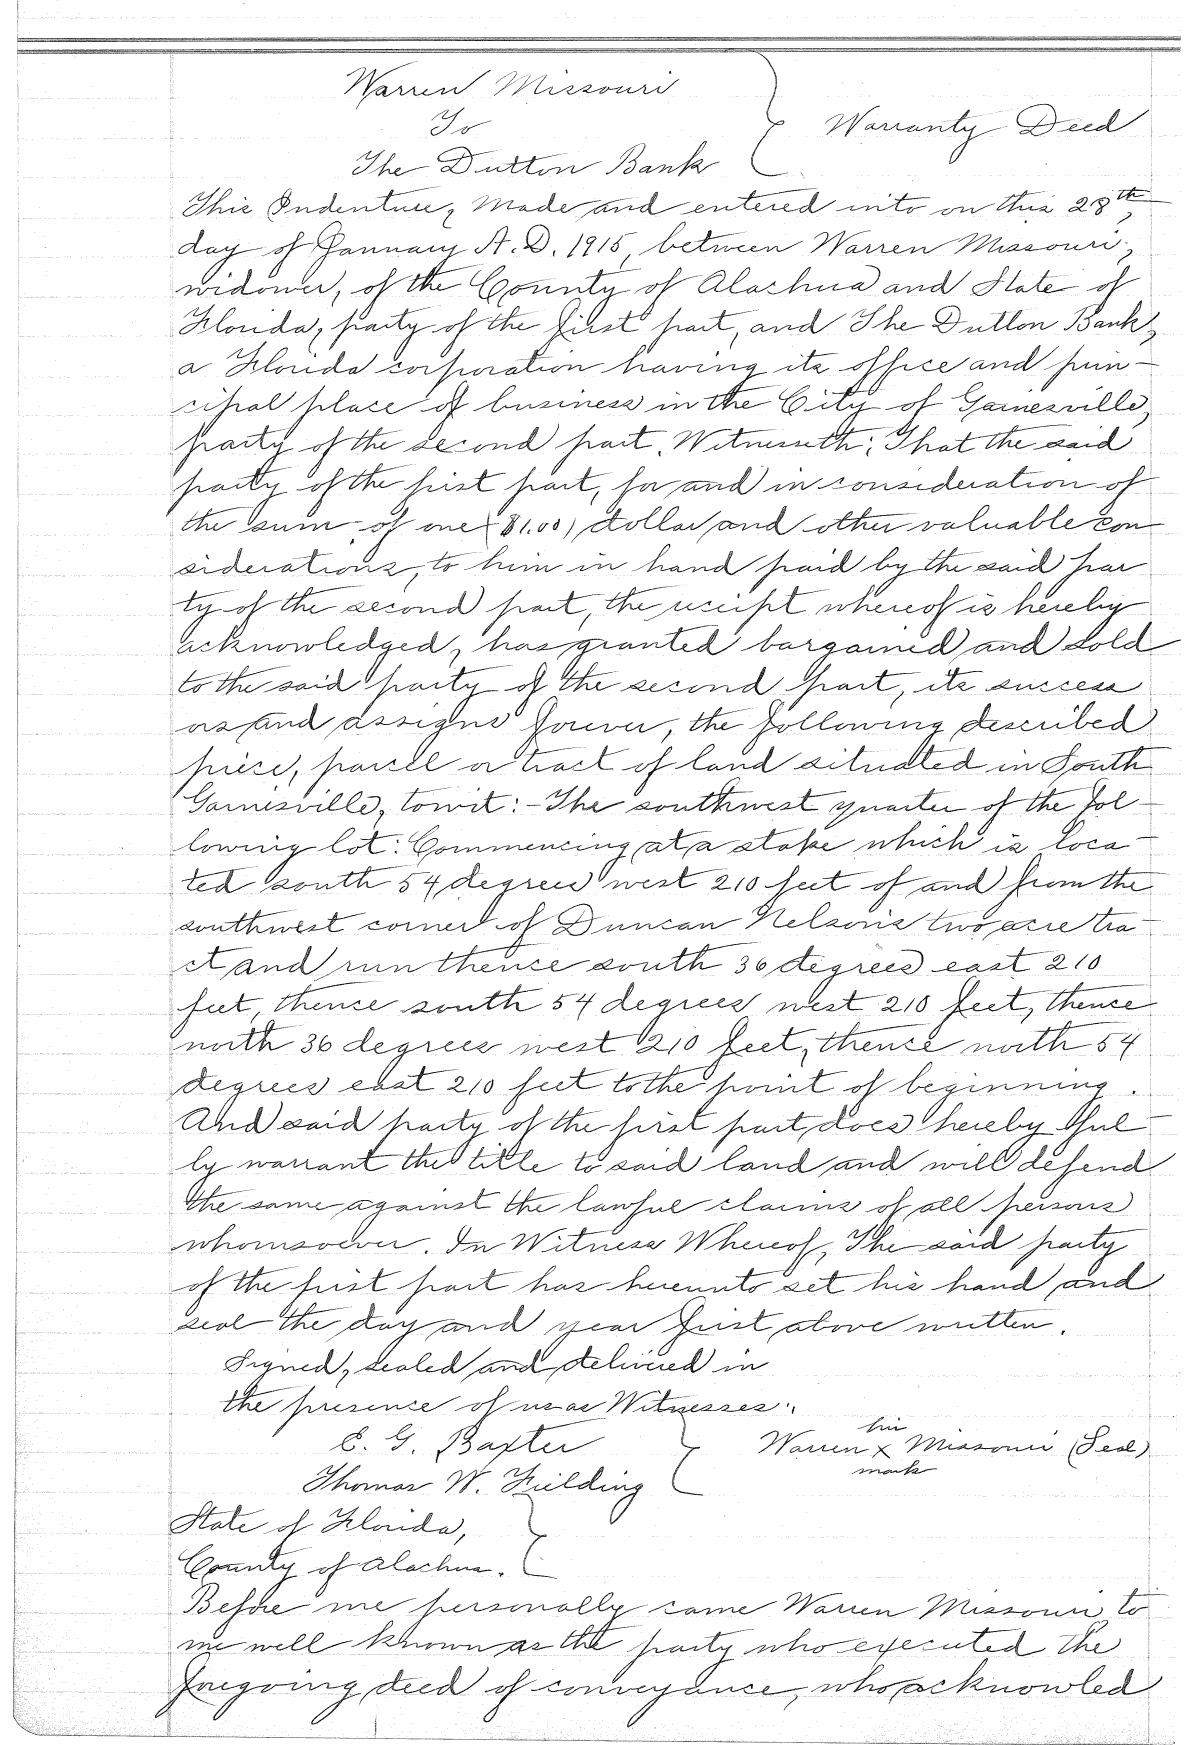 Warren Missouri
To
Warranty Deed
The Dutton Bank
This Indenture, Made and entered into on this 28th
day of January A.D. 1915, between Warren Missouri,
widower, of the County of Alachua and State of
Florida, party of the first part, and The Dutton Bank,
a Florida corporation having its office and prin-
cipal place of business in the City of Gainesville,
party of the second part. Witnesseth: That the said
party of the first part, for and in consideration of
the sum of one ($1.00) dollar and other valuable con
siderations, to him in hand paid by the said par
ty of the second part, the receipt whereof is hereby
acknowledged, has granted bargained and sold
to the said party of the second part, its success
ors and assigns forever, the following described
piece, parcel or tract of land situated in South
Gainesville, towit:- The southwest quarter of the fol-
lowing lot: Commencing at a stake which is loca-
ted south 54 degrees west 210 feet of and from the
southwest corner of Duncan Nelson's two acre tra-
ct and run thence south 36 degrees east 210
feet, thence south 54 degrees west 210 feet, thence
north 36 degrees west 210 feet, thence north 54
degrees east 210 feet to the point of beginning.
And said party of the first part does hereby ful-
ly warrant the title to said land and will defend
the same against the lawful claims of all persons
whomsoever. In Witness Whereof, The said party
of the first part has hereunto set his hand and
seal the day and year first above written.
Signed, sealed and delivered in
the presence of us as Witnesses:
his
E. G. Baxter
Warren x Missouri (Seal)
mark
Thomas W. Fielding
State of Florida,
County of Alachua.
Before me personally came Warren Missouri, to
me well known as the party who executed the
foregoing deed of conveyance, who acknowled